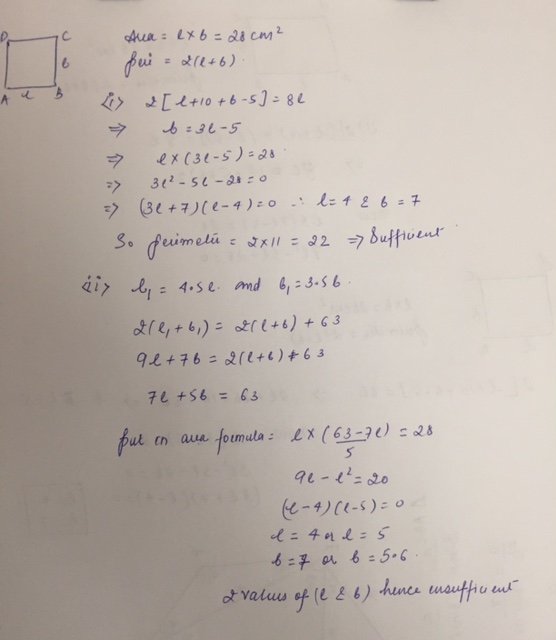 D C
b
A l B
Area = l × b = 28 cm²
Peri = 2(l+b)
(i) 2[l+10+b-5] = 8l
⇒ b = 3l-5
⇒ l×(3l-5) = 28
⇒ 3l²-5l-28 = 0
⇒ (3l+7)(l-4) = 0 ∴ l=4 & b=7
So Perimeter = 2×11 = 22 ⇒ Sufficient
(ii) l₁ = 4.5l and b₁ = 3.5b
2(l₁+b₁) = 2(l+b)+63
9l+7b = 2(l+b)+63
7l+5b = 63
Put in area formula = l×(63-7l)/5 = 28
9l-l² = 20
(l-4)(l-5) = 0
l = 4 or l = 5
b = 7 or b = 5.6
2 values of (l & b) hence insufficient